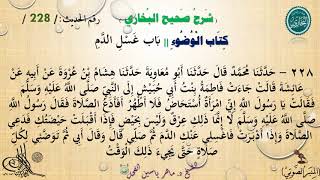 شرح صحيح البخاري رقم الحديث: / 228
كتاب الوضوء || باب غسل الدم
٢٢٨ - حَدَّثَنَا مُحَمَّدٌ قَالَ حَدَّثَنَا أَبُو مُعَاوِيَةَ حَدَّثَنَا هِشَامُ بْنُ عُرْوَةَ عَنْ أَبِيهِ عَنْ
عَائِشَةَ قَالَتْ جَاءَتْ فَاطِمَةُ بِنْتُ أَبِي حُبَيْشٍ إِلَى النَّبِيِّ صَلَّى اللَّهُ عَلَيْهِ وَسَلَّمَ
فَقَالَتْ يَا رَسُولَ اللَّهِ إِنِّي امْرَأَةٌ أُسْتَحَاضُ فَلَا أَطْهُرُ أَفَأَدَعُ الصَّلَاةَ فَقَالَ رَسُولُ
اللَّهِ صَلَّى اللَّهُ عَلَيْهِ وَسَلَّمَ لَا إِنَّمَا ذَلِكِ عِرْقٌ وَلَيْسَ بِحَيْضٍ فَإِذَا أَقْبَلَتْ حَيْضَتُكِ فَدَعِي
الصَّلَاةَ وَإِذَا أَدْبَرَتْ فَاغْسِلِي عَنْكِ الدَّمَ ثُمَّ صَلِّي قَالَ وَقَالَ أَبِي ثُمَّ تَوَضَّئِي لِكُلِّ
صَلَاةٍ حَتَّى يَجِيءَ ذَلِكَ الْوَقْتُ